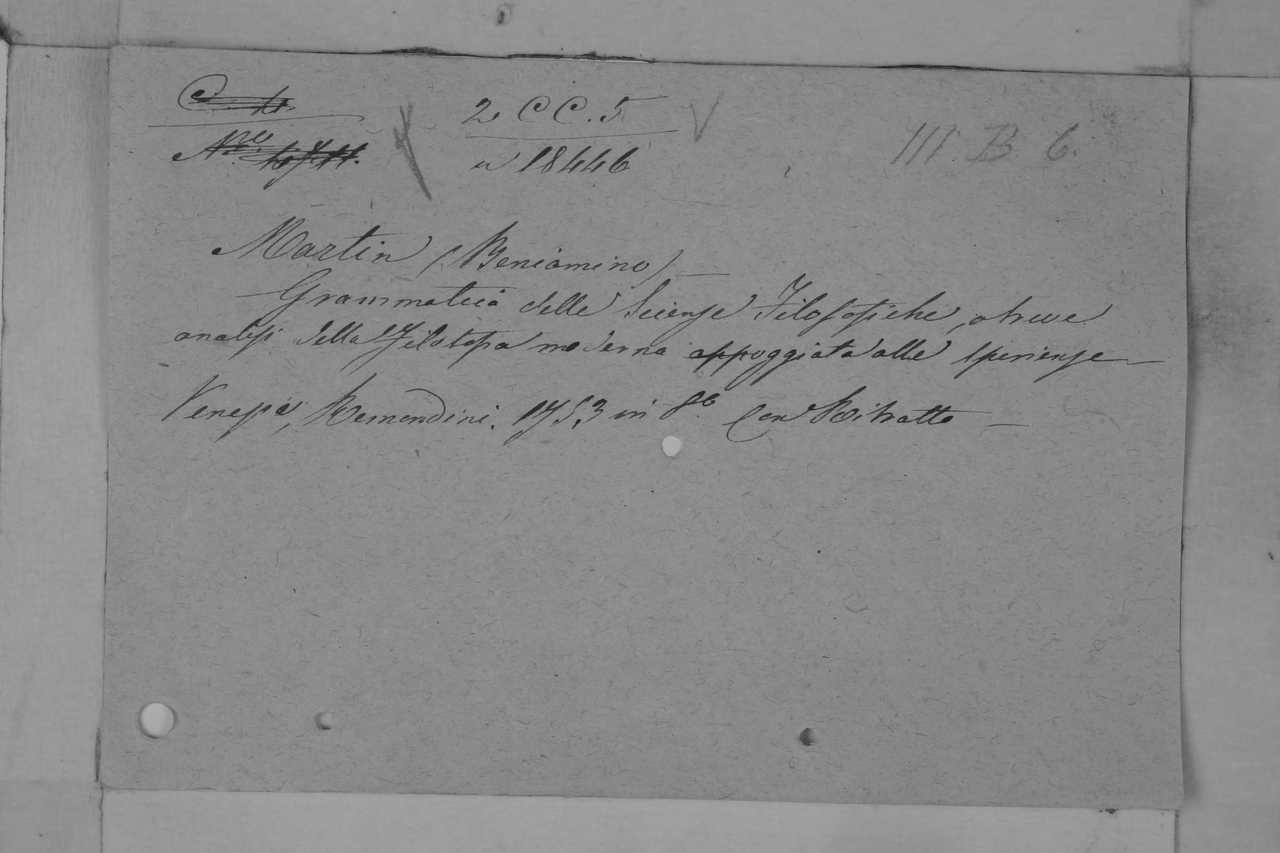 C 4
2 CC. 5
III B 6.
Nro 4711.
n 18446
Martin (Beniamino) —
Grammatica delle Scienze Filosofiche, o breve
analisi della Filosofia moderna appoggiata alle sperienze —
Venezia, Remondini. 1753 in 8o. Con Ritratto —